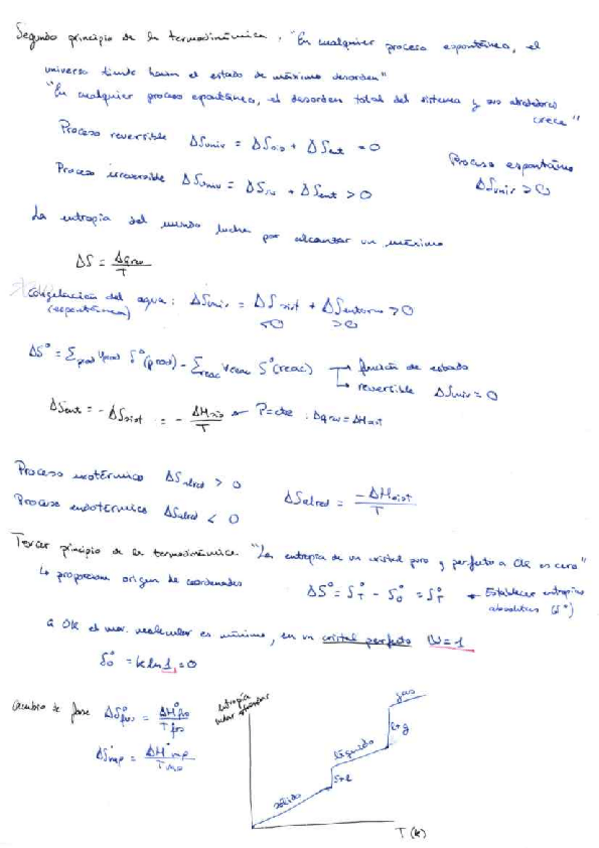 Segundo principio de la termodinámica. "En cualquier proceso espontáneo, el
universo tiende hacia el estado de máximo desorden"
"En cualquier proceso epontáneo, el desorden total del sistema y sus alrededores
crece"
Proceso reversible ΔSuniv = ΔSsis + ΔSent = 0
Proceso irreversible ΔSuniv = ΔSsis + ΔSent > 0
Proceso espontáneo
ΔSuniv > 0
La entropía del mundo lucha por alcanzar un máximo
ΔS = Δqrev / T
Congelación del agua: ΔSuniv = ΔSsist + ΔSentorno > 0
(espontánea) <0 >0
ΔS° = Σprod νprod S°(prod) - Σreac νreac S°(reac) → función de estado
→ reversible ΔSuniv = 0
ΔSent = -ΔSsist = - ΔHsis / T P=cte: Δqrev = ΔHsist
Proceso exotérmico ΔSalred > 0
Proceso endotérmico ΔSalred < 0
ΔSalred = -ΔHsist / T
Tercer principio de la termodinámica "La entropía de un cristal puro y perfecto a 0K es cero"
↳ proporciona origen de coordenadas
ΔS° = S°T - S°0 = S°T ← Establecer entropías
absolutas (S°)
a 0K el mov. molecular es mínimo, en un cristal perfecto W=1
S°0 = k ln 1 = 0
Cambio de fase ΔS°fus = ΔH°fus / Tfus
ΔS°vap = ΔH°vap / Tvap
entropía
molar
sólido
s+l
líquido
l+g
gas
T (K)